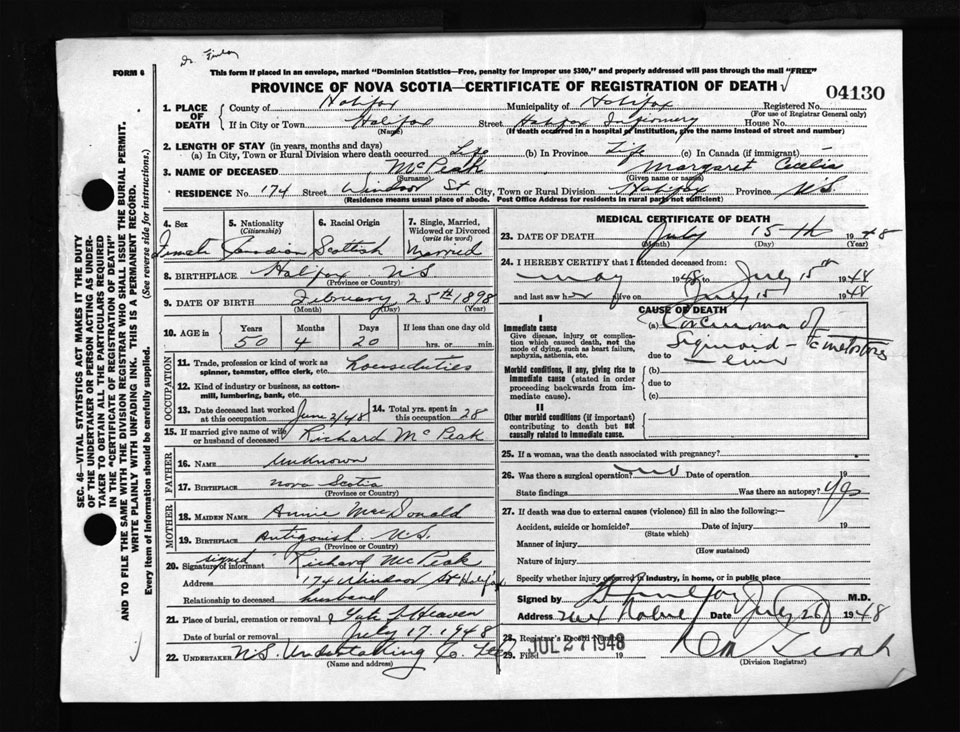 Dr. Finlay
FORM 6
This form if placed in an envelope, marked "Dominion Statistics—Free, penalty for improper use $300," and properly addressed will pass through the mail "FREE"
PROVINCE OF NOVA SCOTIA—CERTIFICATE OF REGISTRATION OF DEATH
04130
1. PLACE OF DEATH
County of Halifax Municipality of Halifax Registered No.
(For use of Registrar General only)
If in City or Town Halifax Street Halifax Infirmary House No.
(Name) (If death occurred in a hospital or institution, give the name instead of street and number)
2. LENGTH OF STAY (in years, months and days)
(a) In City, Town or Rural Division where death occurred Life (b) In Province Life (c) In Canada (if immigrant)
3. NAME OF DECEASED McPeak Margaret Cecelia
(Surname) (Given name or names)
RESIDENCE No. 174 Street Windsor St City, Town or Rural Division Halifax Province N.S.
(Residence means usual place of abode. Post Office Address for residents in rural parts not sufficient)
4. Sex
Female
5. Nationality
(Citizenship)
Canadian
6. Racial Origin
Scottish
7. Single, Married, Widowed or Divorced
(write the word)
Married
8. BIRTHPLACE Halifax N.S.
9. DATE OF BIRTH February 25th 1898
(Month) (Day) (Year)
10. AGE in
Years Months Days If less than one day old
50 4 20 hrs. or min.
OCCUPATION
11. Trade, profession or kind of work as spinner, teamster, office clerk, etc. houseduties
12. Kind of industry or business, as cotton-mill, lumbering, bank, etc.
13. Date deceased last worked at this occupation June 2/48
14. Total yrs. spent in this occupation 28
15. If married give name of wife or husband of deceased Richard McPeak
FATHER
16. NAME Unknown
17. BIRTHPLACE Nova Scotia
(Province or Country)
MOTHER
18. MAIDEN NAME Annie MacDonald
19. BIRTHPLACE Antigonish N.S.
(Province or Country)
signed
20. Signature of informant Richard McPeak
Address 174 Windsor St Halifax
Relationship to deceased husband
21. Place of burial, cremation or removal Gate of Heaven
Date of burial or removal July 17. 1948
22. UNDERTAKER N.S. Undertaking Co. Ltd
(Name and address)
MEDICAL CERTIFICATE OF DEATH
23. DATE OF DEATH July 15th 1948
(Month) (Day) (Year)
24. I HEREBY CERTIFY that I attended deceased from:
May 1948 to July 15th 1948
and last saw her alive on July 15 1948
CAUSE OF DEATH
I
Immediate cause
Give disease, injury or complication which caused death, not the mode of dying, such as heart failure, asphyxia, asthenia, etc.
(a) Carcinoma of Sigmoid -
due to
Morbid conditions, if any, giving rise to immediate cause (stated in order proceeding backwards from immediate cause).
(b)
due to
(c)
II
Other morbid conditions (if important) contributing to death but not causally related to immediate cause.
25. If a woman, was the death associated with pregnancy?
26. Was there a surgical operation? no Date of operation 19
State findings Was there an autopsy? Yes
27. If death was due to external causes (violence) fill in also the following:—
Accident, suicide or homicide? Date of injury 19
(State which)
Manner of injury
(How sustained)
Nature of injury
Specify whether injury occurred in industry, in home, or in public place
Signed by M.D.
Address Date July 26 1948
28. Registrar's Record Number
29. Filed JUL 27 1948 19
(Division Registrar)
SEC. 46—VITAL STATISTICS ACT MAKES IT THE DUTY
OF THE UNDERTAKER OR PERSON ACTING AS UNDER-
TAKER TO OBTAIN ALL THE PARTICULARS REQUIRED
IN THE "CERTIFICATE OF REGISTRATION OF DEATH"
AND TO FILE THE SAME WITH THE DIVISION REGISTRAR WHO SHALL ISSUE THE BURIAL PERMIT.
WRITE PLAINLY WITH UNFADING INK. THIS IS A PERMANENT RECORD.
Every item of information should be carefully supplied. (See reverse side for instructions.)